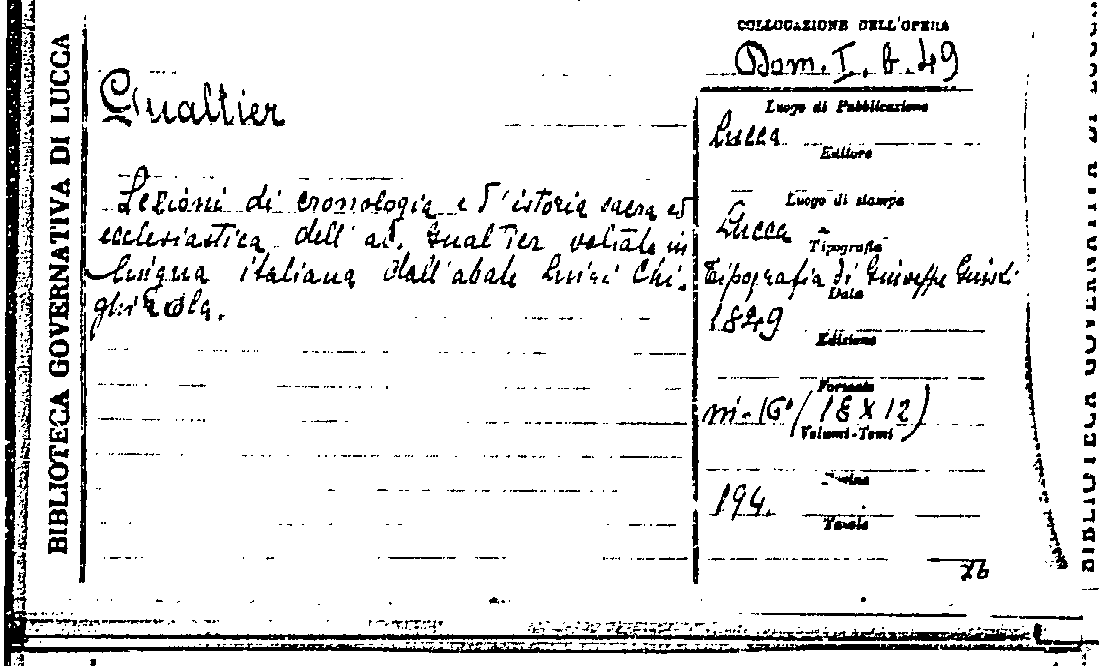 BIBLIOTECA GOVERNATIVA DI LUCCA
COLLOCAZIONE DELL'OPERA
Dom. I. b. 49
Gualtier
Luogo di Pubblicazione
Lucca
Editore
Lezioni di cronologia e d'istoria sacra ed
ecclesiastica dell'ab. Gualtier voltate in
lingua italiana dall'abate Luigi Chi-
ghizola.
Luogo di stampa
Lucca
Tipografia
Tipografia di Giuseppe Giusti
Data
1849
Edizione
Formato
in-16° (18 X 12)
Volumi-Tomi
Pagine
194.
Tavole
26
BIBLIOTECA GOVERNATIVA DI LUCCA